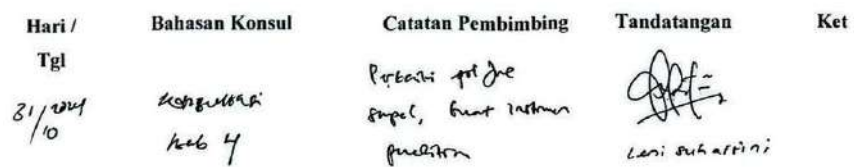 Hari / Tgl Bahasan Konsul Catatan Pembimbing Tandatangan Ket
31/10 2024 Konsultasi bab 4
Perbaiki
buat instrumen penelitian
Leni Suhartini